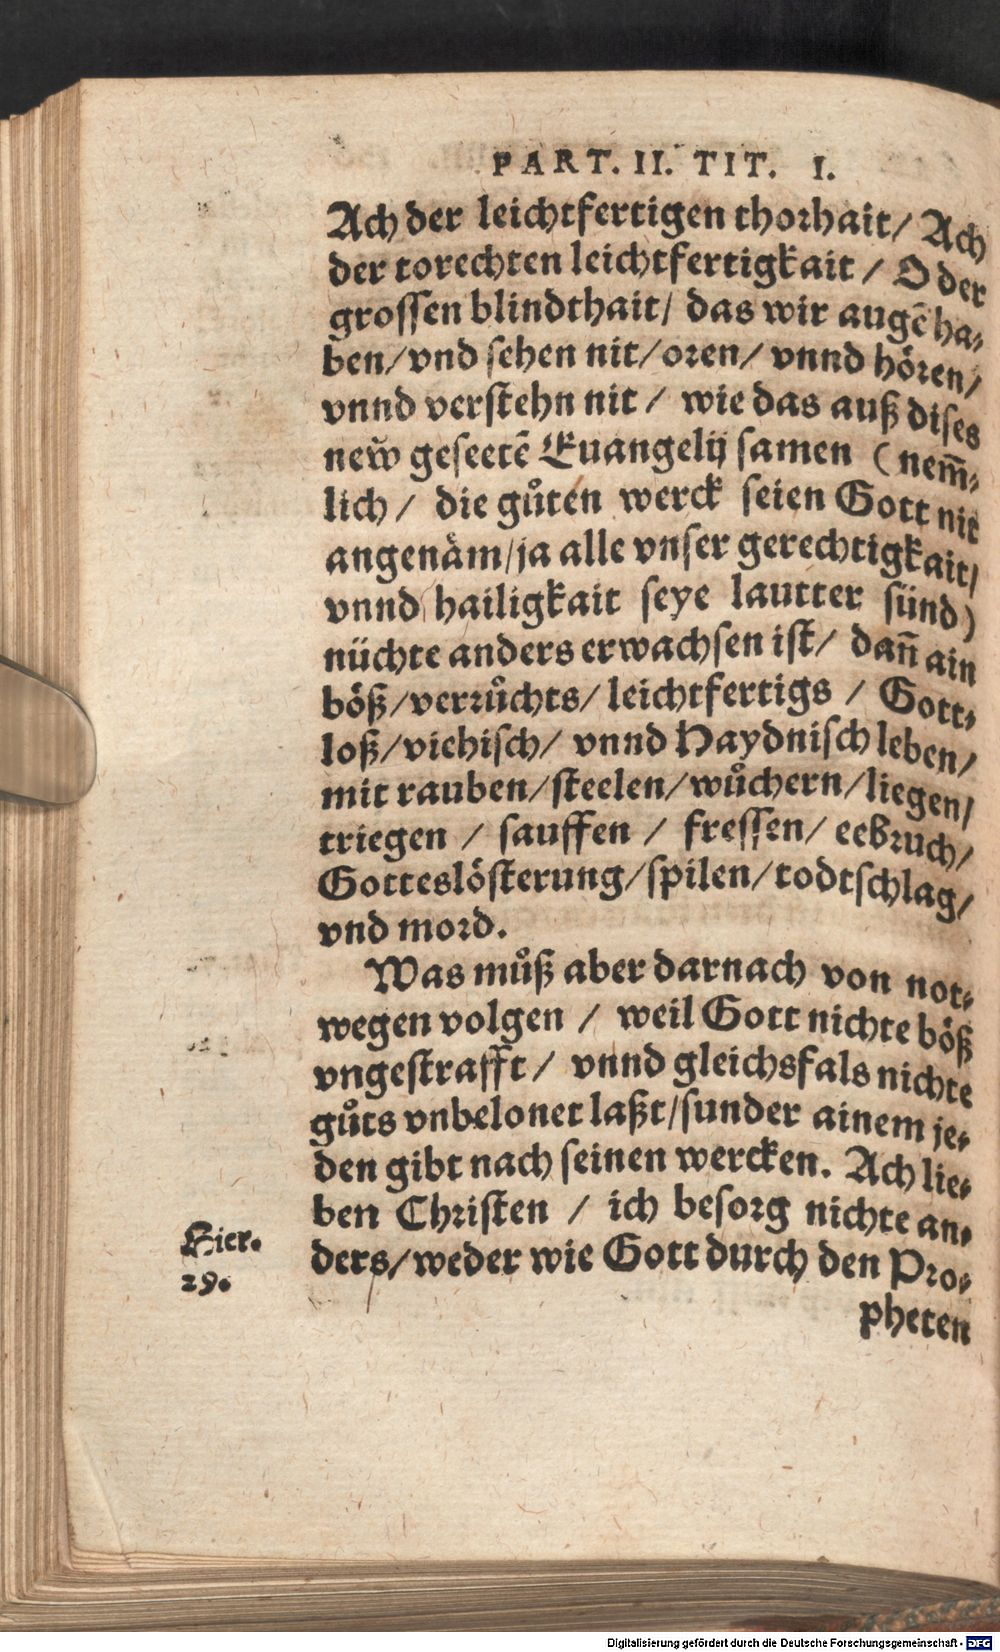 PART. II. TIT. I.
Ach der leichtfertigen thorhait/ Ach
der torechten leichtfertigkait / O der
grossen blindthait/ das wir augē ha-
ben/vnd sehen nit/oren/ vnnd hören/
vnnd verstehn nit / wie das auß dises
new̆ geseetē Euangelij samen (nem̄-
lich / die gůten werck seien Gott nit
angenäm/ja alle vnser gerechtigkait/
vnnd hailigkait seye lautter sünd)
nüchte anders erwachsen ist/ dan̄ ain
böß/verrůchts/leichtfertigs / Gott-
loß/viehisch/ vnnd Haydnisch leben/
mit rauben/steelen/wůchern/liegen/
triegen / sauffen / fressen/ eebruch/
Gotteslösterung/spilen/todtschlag/
vnd mord.
Was můß aber darnach von not-
wegen volgen / weil Gott nichte böß
vngestrafft/ vnnd gleichsfals nichte
gůts vnbelonet laßt/sunder ainem je-
den gibt nach seinen wercken. Ach lie-
ben Christen / ich besorg nichte an-
Hier.
29.
ders/weder wie Gott durch den Pro-
pheten
Digitalisierung gefördert durch die Deutsche Forschungsgemeinschaft - DFG